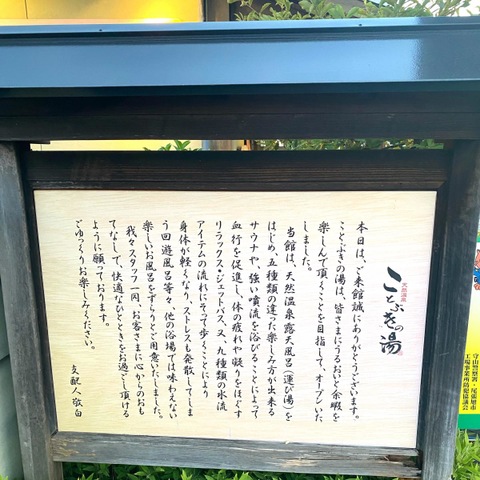 天然温泉
ことぶきの湯
本日は、ご来館誠にありがとうございます。
ことぶきの湯は、皆さまにうるおいと余暇を
楽しんで頂くことを目指して、オープンいた
しました。
当館は、天然温泉露天風呂(運び湯)を
はじめ、五種類の違った楽しみ方が出来る
サウナや、強い噴流を浴びることによって
血行を促進し、体の疲れや凝りをほぐす
リラックス・ジェットバス又、九種類の水流
アイテムの流れにそって歩くことにより
身体が軽くなり、ストレスも発散してしま
う回遊風呂等々、他の浴場では味わえない
楽しいお風呂をずらりとご用意いたしました。
我々スタッフ一同、お客さまに心からのおも
てなしで、快適なひとときをお過ごし頂ける
ように願っております。
ごゆっくりお楽しみください。
支配人敬白
守山警察署・尾張旭市
工場事業所防犯協議会